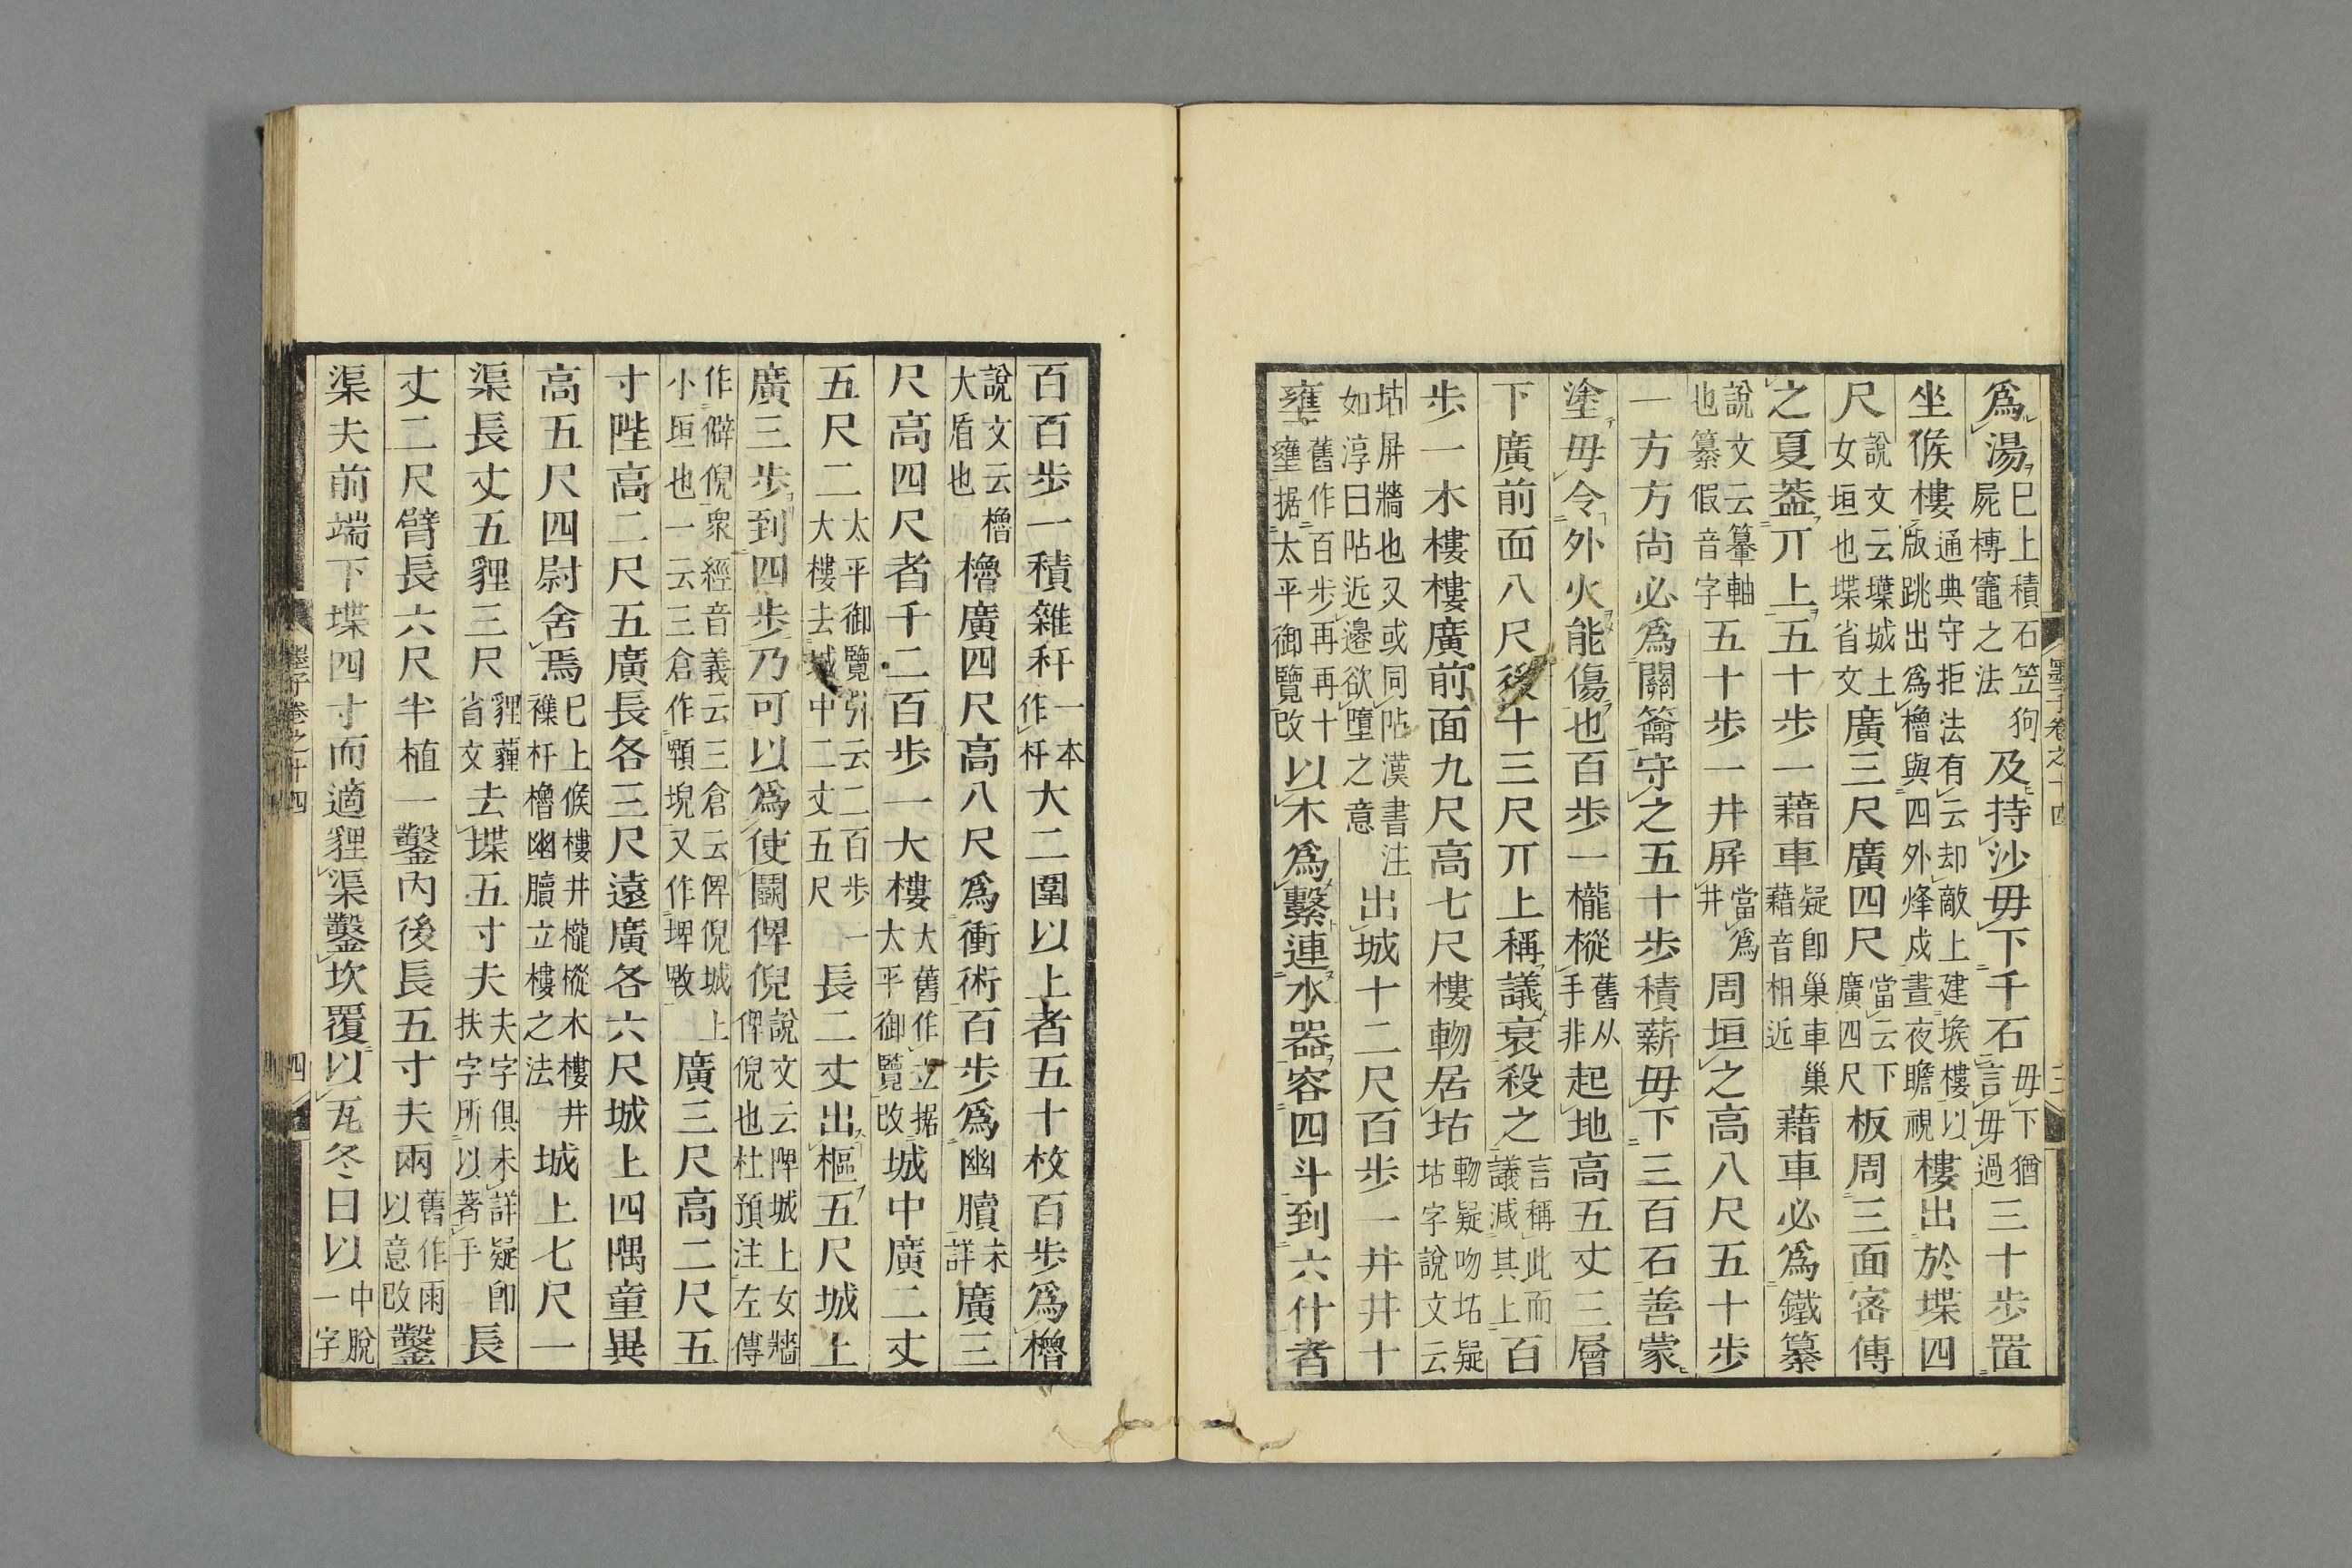 墨子卷之十四
三
爲湯巳上積石笠狗屍榑竈之法及持沙毋下千石毋下猶言毋過三十步置
坐候樓通典守拒法有云却敵上建堠樓以版跳出爲櫓與四外烽戍晝夜瞻視樓出於堞四
尺說文云堞城土女垣也堞省文廣三尺廣四尺當云下廣四尺板周三面密傅
之夏葢丌上五十步一藉車疑卽巢車巢藉音相近藉車必爲鐵纂
說文云軸也纂假音字五十步一井屏當爲井周垣之高八尺五十步
一方方尚必爲關籥守之五十步積薪毋下三百石善蒙
塗毋令外火能傷也百步一櫳樅舊从手非起地高五丈三層
下廣前面八尺後十三尺丌上稱議衰殺之言稱此而議減其上百
步一木樓樓廣前面九尺高七尺樓軔居坫軔疑吻坫疑坫字說文云
坫屏牆也又或同阽漢書注如淳曰阽近邊欲墮之意出城十二尺百步一井井十
甕舊作百步再再十壅据太平御覽改以木爲繫連水器容四斗到六什者
百百步一積雜秆一本作杆大二圍以上者五十枚百步爲櫓
說文云櫓大盾也櫓廣四尺高八尺爲衝術百步爲幽䐁未詳廣三
尺高四尺者千二百步一大樓大舊作立据太平御覽改城中廣二丈
五尺二太平御覽引云二百步一大樓去城中二丈五尺長二丈出樞五尺城上
廣三步到四步乃可以爲使鬬俾倪說文云陴城上女牆俾倪也杜預注左傳
作僻倪衆經音義云三倉云俾倪城上小垣也一云三倉作顊堄又作埤㪏廣三尺高二尺五
寸陛高二尺五廣長各三尺遠廣各六尺城上四隅童異
高五尺四尉舍焉巳上候樓井櫳樅木樓井襍杆櫓幽䐁立樓之法城上七尺一
渠長丈五貍三尺貍薶省文去堞五寸夫夫字俱未詳疑卽扶字所以著手長
丈二尺臂長六尺半植一鑿內後長五寸夫兩舊作雨以意改鑿
渠夫前端下堞四寸而適貍渠鑿坎覆以瓦冬日以中脫一字
墨子卷之十四
四